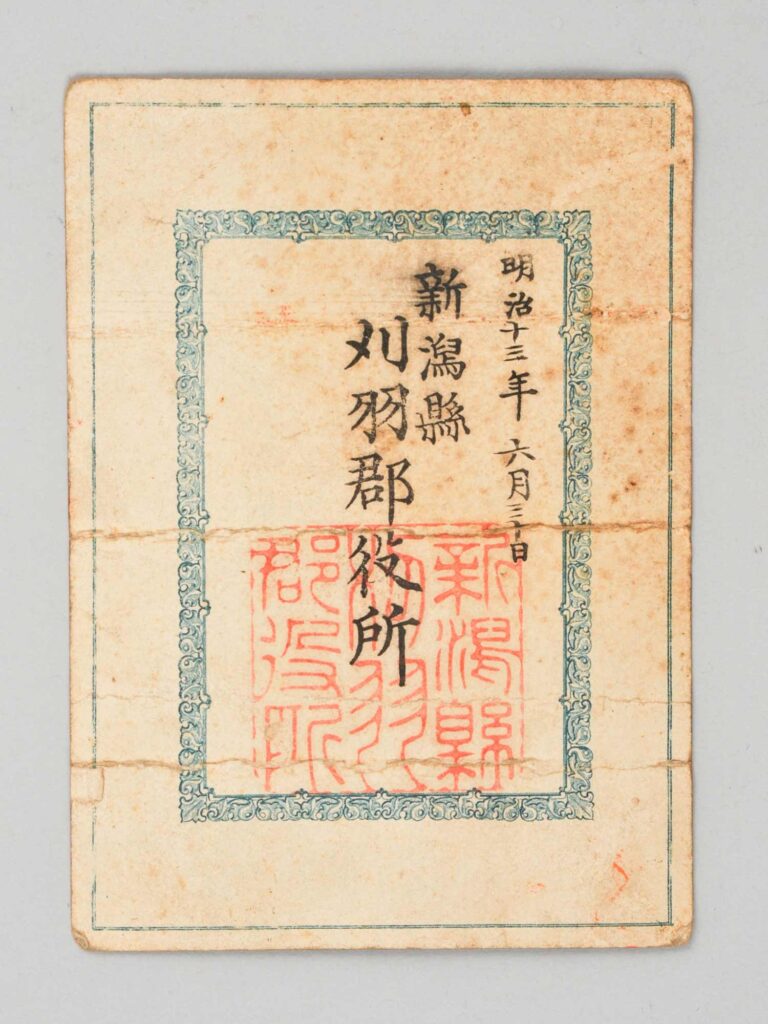 明治十三年六月三十日
新潟縣
刈羽郡役所
新潟縣
刈羽
郡役所